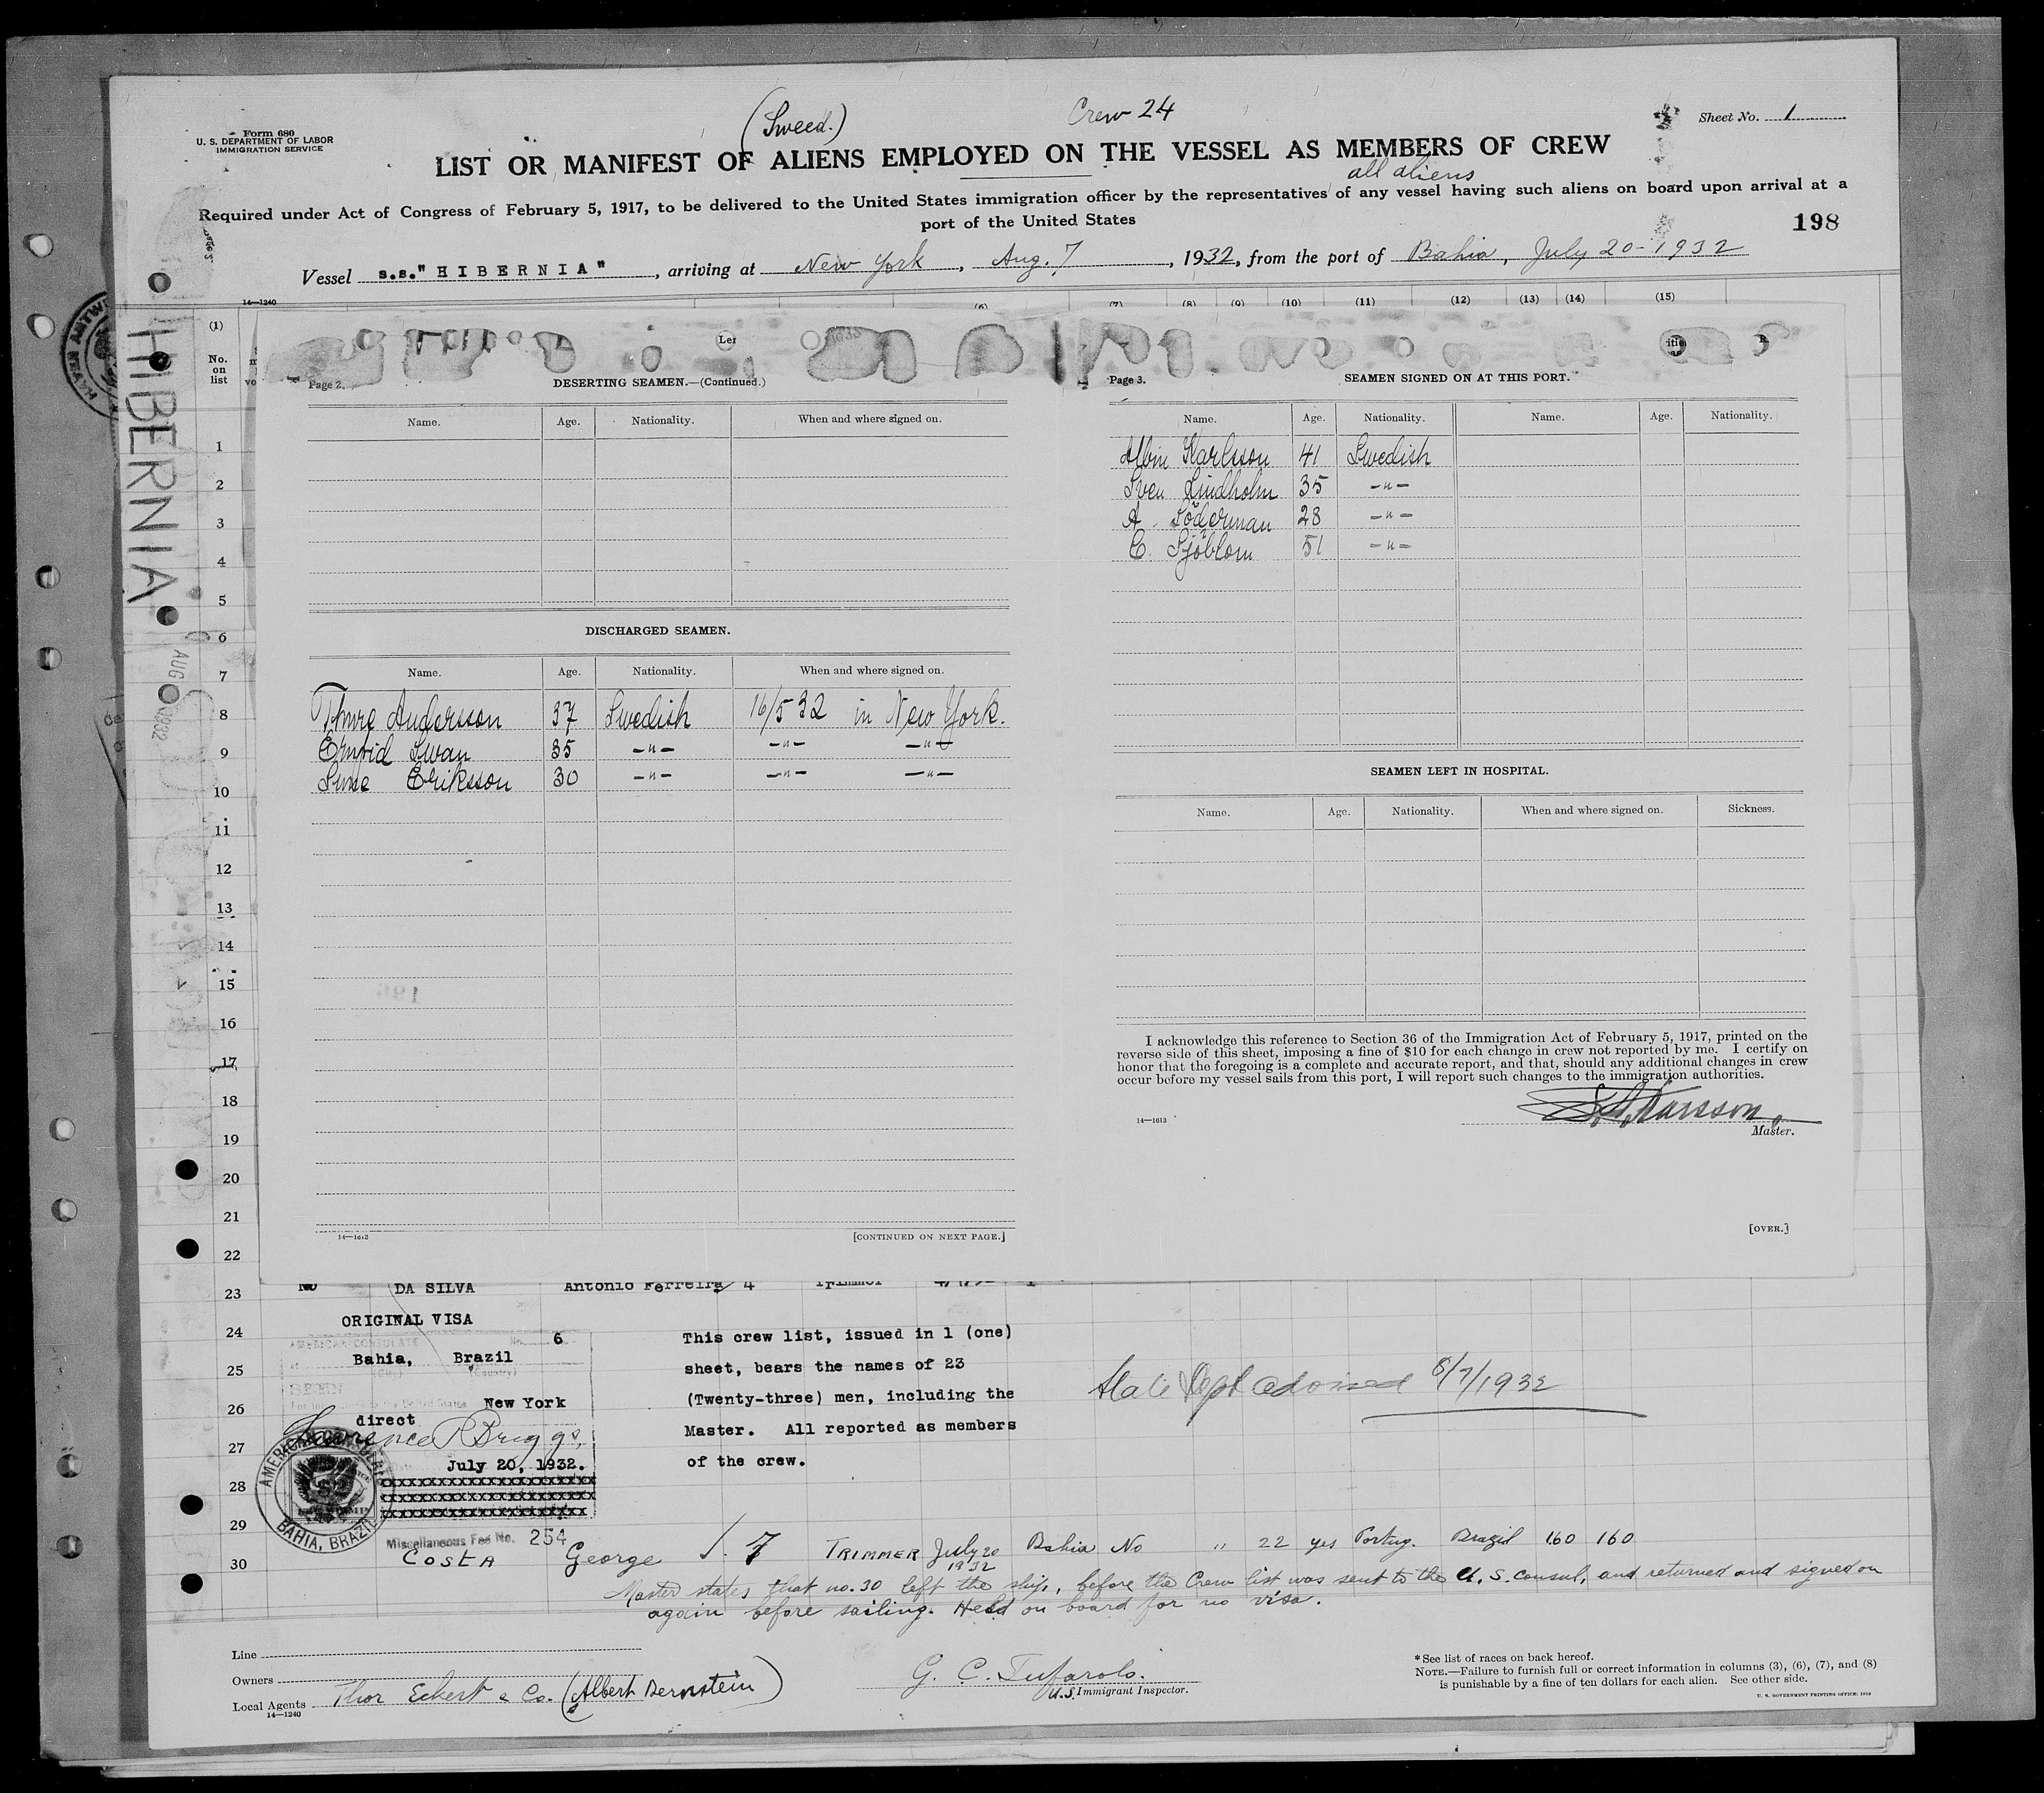 (Sweed.)
Crew 24
Form 680
U. S. DEPARTMENT OF LABOR
IMMIGRATION SERVICE
Sheet No. 1
LIST OR MANIFEST OF ALIENS EMPLOYED ON THE VESSEL AS MEMBERS OF CREW
all aliens
Required under Act of Congress of February 5, 1917, to be delivered to the United States immigration officer by the representatives of any vessel having such aliens on board upon arrival at a
port of the United States
198
Vessel s.s."HIBERNIA", arriving at New York, Aug. 7, 1932, from the port of Bahia, July 20-1932
14—1240
(6) (7) (8) (9) (10) (11) (12) (13) (14) (15)
(1)
No.
on
list
HIBERNIA
AUG 1932
Page 2.
DESERTING SEAMEN.—(Continued.)
Name. Age. Nationality. When and where signed on.
DISCHARGED SEAMEN.
Name. Age. Nationality. When and where signed on.
Thure Andersson 37 Swedish 16/5 32 in New York.
Ernfrid Swan 35 -"- -"- -"-
Sune Eriksson 30 -"- -"- -"-
14—1613
[CONTINUED ON NEXT PAGE.]
Page 3.
SEAMEN SIGNED ON AT THIS PORT.
Name. Age. Nationality. Name. Age. Nationality.
Albin Karlsson 41 Swedish
Sven Lindholm 35 -"-
A. Söderman 28 -"-
C. Sjöblom 51 -"-
SEAMEN LEFT IN HOSPITAL.
Name. Age. Nationality. When and where signed on. Sickness.
I acknowledge this reference to Section 36 of the Immigration Act of February 5, 1917, printed on the
reverse side of this sheet, imposing a fine of $10 for each change in crew not reported by me. I certify on
honor that the foregoing is a complete and accurate report, and that, should any additional changes in crew
occur before my vessel sails from this port, I will report such changes to the immigration authorities.
14—1613
Master.
[OVER.]
1
2
3
4
5
6
7
8
9
10
11
12
13
14
15
16
17
18
19
20
21
22
23 No DA SILVA Antonio Ferreira 4 Trimmer
24
25
26
27
28
29
30
ORIGINAL VISA
AMERICAN CONSULATE No. 6
Bahia, Brazil
(City) (Country)
SEEN
New York
direct
Lawrence P Briggs,
July 20, 1932.
AMERICAN CONSULATE
BAHIA, BRAZIL
Miscellaneous Fee No. 254
This crew list, issued in 1 (one)
sheet, bears the names of 23
(Twenty-three) men, including the
Master. All reported as members
of the crew.
State Dept advised 8/7/1932
COSTA George J. 7 TRIMMER July 20 1932 Bahia No " 22 yes Portug. Brazil 160 160
Master states that no. 30 left the ship, before the Crew list was sent to the U. S. Consul, and returned and signed on
again before sailing. Held on board for no visa.
Line
Owners
Local Agents Thor Eckert & Co. (Albert Bernstein)
14—1240
G. C. Tufarolo.
U.S. Immigrant Inspector.
*See list of races on back hereof.
NOTE.—Failure to furnish full or correct information in columns (3), (6), (7), and (8)
is punishable by a fine of ten dollars for each alien. See other side.
U. S. GOVERNMENT PRINTING OFFICE: 1929